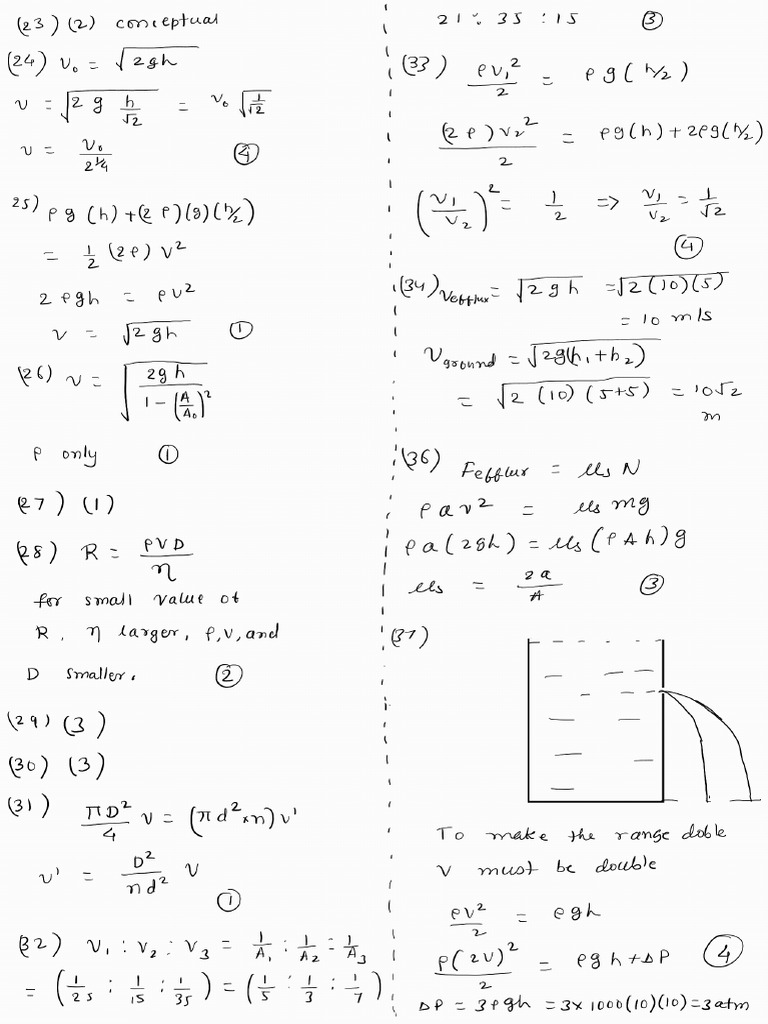 (23) (2) conceptual
(24) v₀ = √(2gh)
v = √(2 g h/√2) = v₀ √(1/√2)
v = v₀/2^(1/4) ④
25) ρg(h)+(2ρ)(g)(h/2)
= 1/2 (2ρ) v²
2ρgh = ρv²
v = √(2gh) ①
(26) v = √(2gh/(1-(A/A₀)²))
ρ only ①
(27) (1)
(28) R = ρVD/η
for small value of
R, η larger, ρ,v, and
D smaller. ②
(29) (3)
(30) (3)
(31) πD²/4 v = (πd²×n) v'
v' = D²/nd² v
①
(32) v₁ : v₂ : v₃ = 1/A₁ : 1/A₂ : 1/A₃
= (1/25 : 1/15 : 1/35) = (1/5 : 1/3 : 1/7)
21 : 35 : 15 ③
(33) ρv₁²/2 = ρg(h/2)
(2ρ)v₂²/2 = ρg(h)+2ρg(h/2)
(v₁/v₂)² = 1/2 => v₁/v₂ = 1/√2
④
(34) Vefflux = √(2gh) = √(2(10)(5))
= 10 m/s
Vground = √(2g(h₁+h₂))
= √(2(10)(5+5)) = 10√2
m
(36) Fefflux = μs N
ρav² = μs mg
ρa(2gh) = μs(ρAh)g
μs = 2a/A ③
(37)
To make the range doble
v must be double
ρv²/2 = ρgh
ρ(2v)²/2 = ρgh+ΔP ④
ΔP = 3ρgh = 3×1000(10)(10) = 3atm